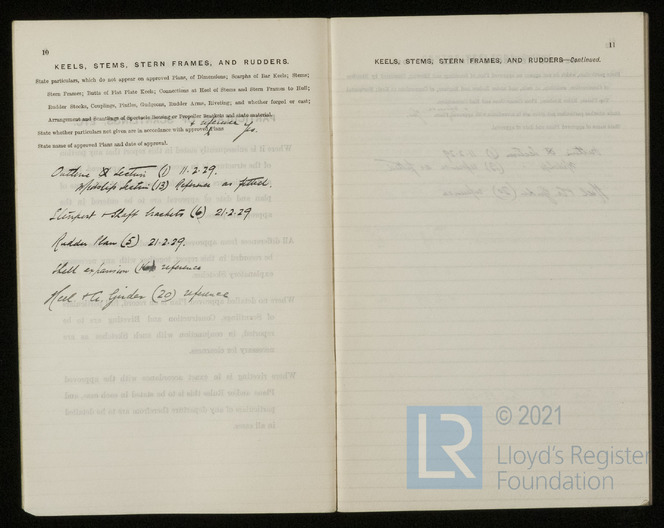 10
KEELS, STEMS, STERN FRAMES, AND RUDDERS.
State particulars, which do not appear on approved Plans, of Dimensions; Scarphs of Bar Keels; Stems;
Stern Frames; Butts of Flat Plate Keels; Connections at Heel of Stems and Stern Frames to Hull;
Rudder Stocks, Couplings, Pintles, Gudgeons, Rudder Arms, Riveting; and whether forged or cast;
Arrangement and Scantlings of Spectacle Bossing or Propeller Brackets and state material.
& reference
State whether particulars not given are in accordance with approved Plans Yes.
State name of approved Plans and date of approval.
Outline & Section (1) 11.2.29.
Midship Section (13) Reference as fitted.
Sternpost & Shaft brackets (6) 21.2.29
Rudder Plan (5) 21.2.29.
Shell expansion reference
Keel & Co, Girder (20) reference
11
KEELS, STEMS, STERN FRAMES, AND RUDDERS—Continued.
LR
© 2021
Lloyd's Register
Foundation